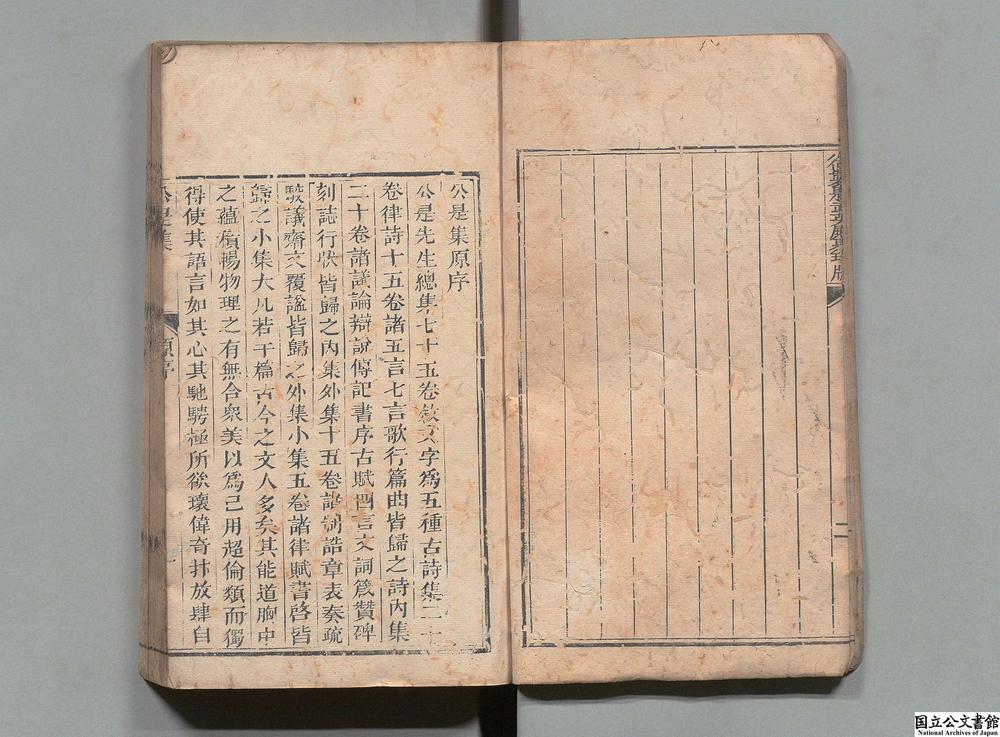 二
公是集原序
公是先生總集七十五卷敘文字爲五種古詩集二十
卷律詩十五卷諸五言七言歌行篇曲皆歸之詩內集
二十卷諸議論辯說傳記書序古賦四言文詞箴贊碑
刻誌行狀皆歸之內集外集十五卷諸制誥章表奏疏
駁議齋文覆謚皆歸之外集小集五卷諸律賦書啓皆
歸之小集大凡若干篇古今之文人多矣其能道胸中
之蘊積暢物理之有無合衆美以爲己用超倫類而獨
得使其語言如其心其馳騁極所欲瓌偉奇抃放肆自
公是集
原序
一
国立公文書館
National Archives of Japan